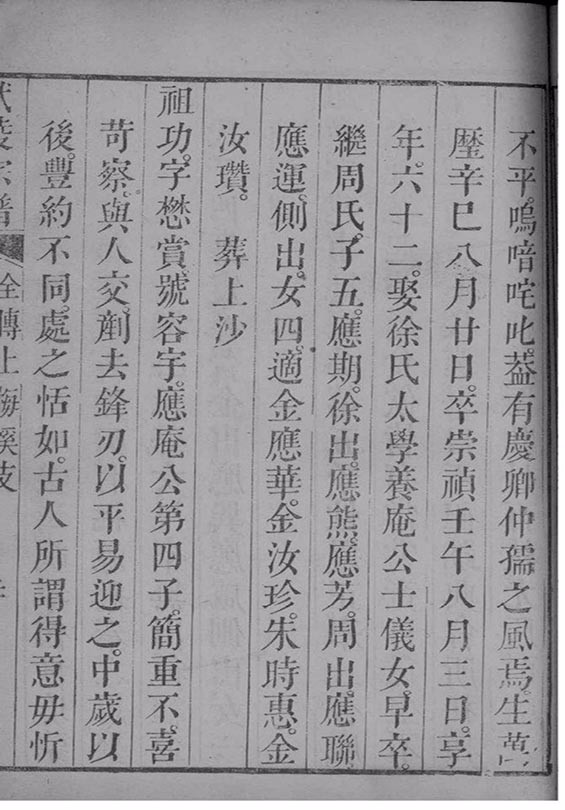 不平。嗚喑咤叱。葢有慶卿仲孺之風焉。生萬
曆辛巳八月廿日。卒崇禎壬午八月三日。享
年。六十二。娶徐氏太學養庵公士儀女。早卒。
繼周氏。子五。應期。徐出。應熊。應芳。周出。應聯。
應運。側出。女四。適金應華。金汝珍。朱時惠。金
汝瓚。　葬上沙
祖功。字懋賞。號容宇。應庵公第四子。簡重不。喜
苛察。與人交。剷去鋒刃。以平易迎之。中歲以
後。豐約不同。處之恬如。古人所謂得意毋忻
宗譜　全傳上　梅溪支